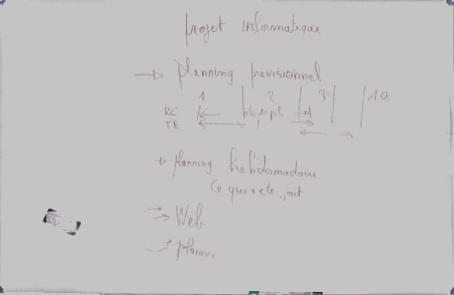 projet informatique
→ planning previsionnel
1 2 3 10
RC
TE
→ planning hebdomadaire
Ce qui
→ Web
→